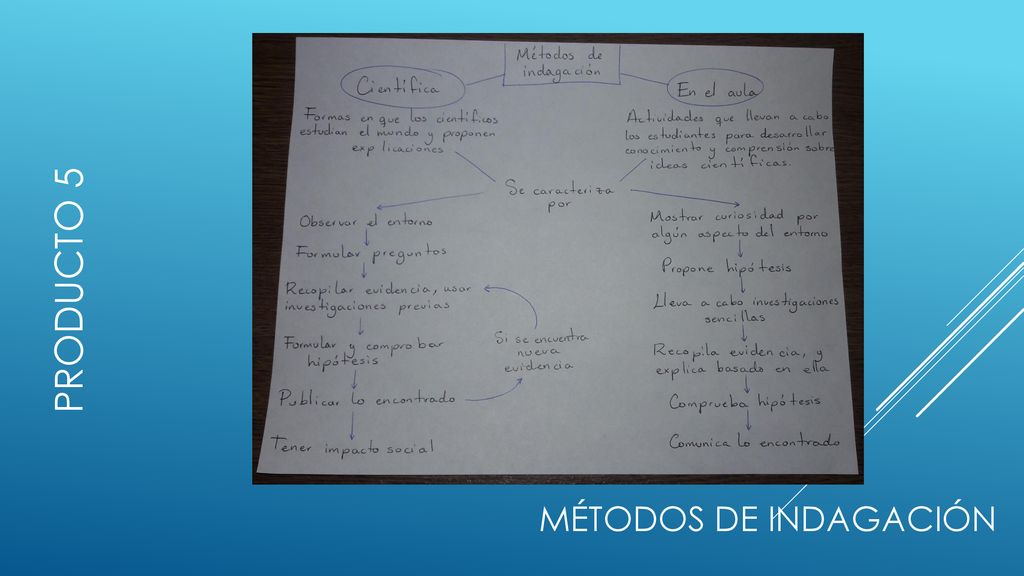 PRODUCTO 5
Métodos de
indagación
Científica
Formas en que los científicos
estudian el mundo y proponen
explicaciones
En el aula
Actividades que llevan a cabo
los estudiantes para desarrollar
conocimiento y comprensión sobre
ideas científicas.
Se caracteriza
por
Observar el entorno
Formular preguntas
Recopilar evidencia, usar
investigaciones previas
Formular y comprobar
hipótesis
Publicar lo encontrado
Tener impacto social
Si se encuentra
nueva
evidencia
Mostrar curiosidad por
algún aspecto del entorno
Propone hipótesis
Lleva a cabo investigaciones
sencillas
Recopila evidencia, y
explica basado en ella
Comprueba hipótesis
Comunica lo encontrado
MÉTODOS DE INDAGACIÓN